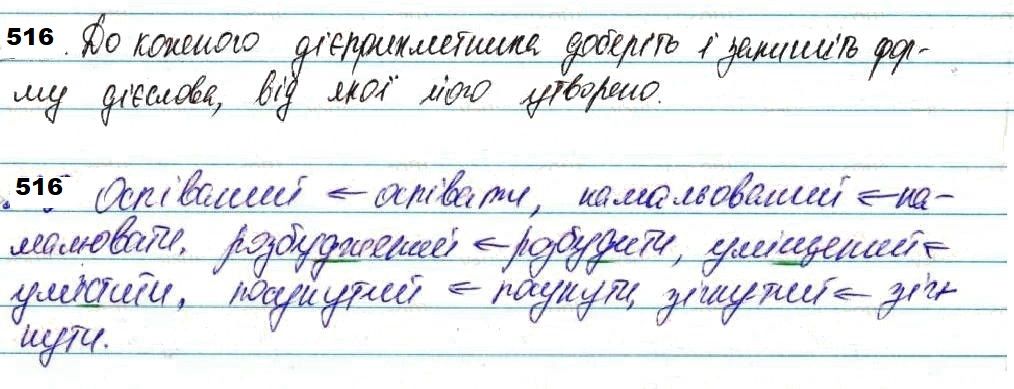 516. До кожного дієприкметника доберіть і запишіть фор-
му дієслова, від якої його утворено.
516 Оспіваний ← оспівати, намальований ← на-
малювати, розбуджений ← розбудити, уміщений ←
умістити, посунутий ← посунути, зігнутий ← зіг-
нути.